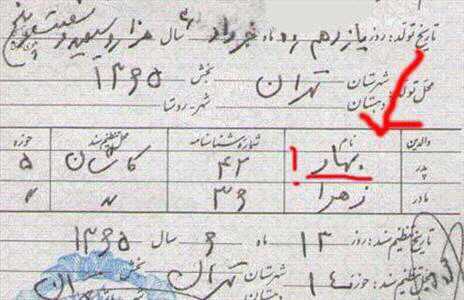 تاریخ تولد: روز یازدهم ماه خرداد سال هزار و سیصد و شصت و پنج
محل تولد: شهرستان تهران بخش ۱۳۶۵
دهستان شهر-روستا
والدین نام شماره شناسنامه محل تنظیم سند حوزه
پدر بهار ! ۴۲ کاشان ۵
مادر زهرا ۳۶ " "
تاریخ تنظیم سند: روز ۱۳ ماه ۶ سال ۱۳۶۵
تنظیم سند: حوزه ۱۴ شهرستان تهران بخش